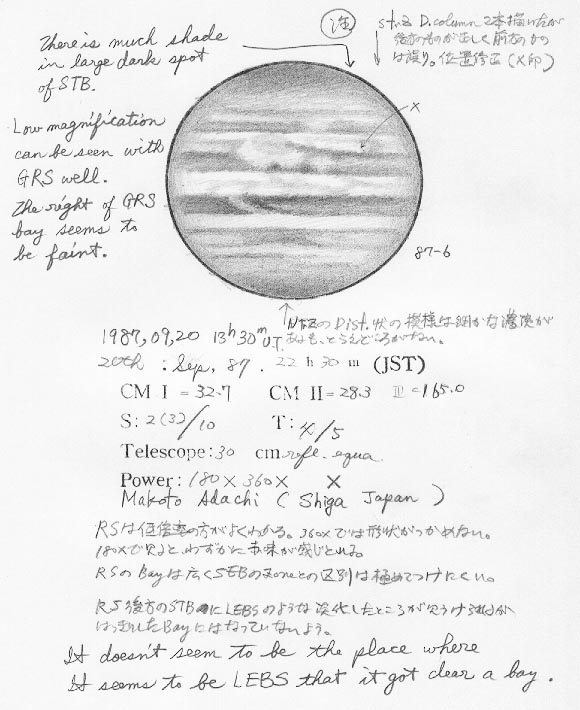 There is much shade
in large dark spot
of STB.
注
STrZ D.column 2本描いたが
後方のものが正しく前方のもの
は誤り。位置修正(X印)
X
Low magnification
can be seen with
GRS well.
The right of GRS
bay seems to
be faint.
87-6
NTZのDist.状の模様は細かな濃淡が
あるも、とらえどころがない。
1987,09,20 13h30m U.T.
20th : Sep, 87. 22 h 30 m (JST)
CM I = 32.7 CM II = 28.3 III = 165.0
S: 2(3)/10 T: 4/5
Telescope: 30 cm refl. equa
Power: 180× 360× ×
Makoto Adachi ( Shiga Japan )
RSは低倍率の方がよくわかる。360×では形状がつかめない。
180×で見ると、わずかに赤味が感じとれる。
RSのBayは広くSEBのZoneとの区別は極めてつけにくい。
RS後方のSTBにLEBSのような淡化したところが見うけられるが
はっきりしたBayにはなっていないよう。
It doesn't seem to be the place where
It seems to be LEBS that it got clear a bay.